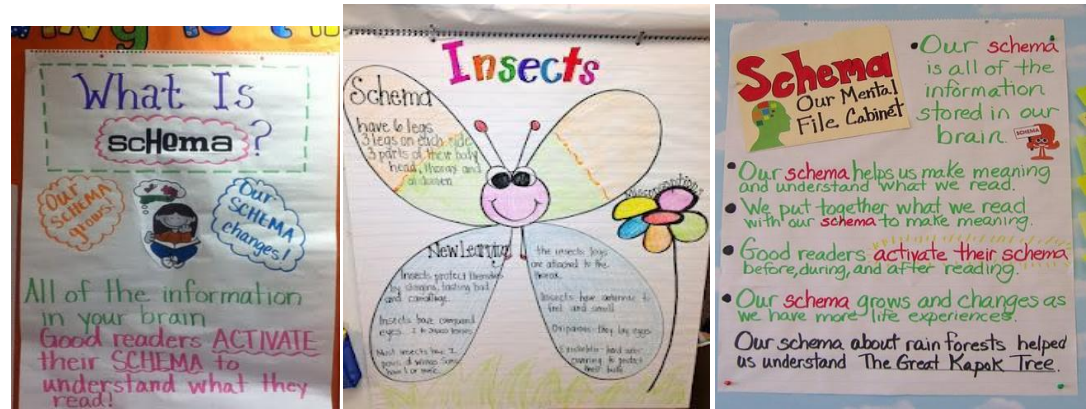 What Is
scHema
?
Our
SCHEMA
grows!
Our
SCHEMA
changes!
All of the information
in your brain
Good readers ACTIVATE
their SCHEMA to
understand what they
read!
Insects
Schema
have 6 legs
3 legs on each side
3 parts of their body
head, thorax and
New Learning
Insects protect
by stinging, tasting bad
and camouflage
Insects have compound
eyes
Most insects have 2
pairs of wings. Some
have 1 or none.
the insects legs
are attached to the
thorax.
Insects have antennae to
feel and smell
Oviparous - they lay eggs
Exoskeleton - hard outer
covering to protect
their body
Misconceptions
Schema
Our Mental
File Cabinet
Our schema
is all of the
information
stored in our
brain.
SCHEMA
Our schema helps us make meaning
and understand what we read.
We put together what we read
with our schema to make meaning.
Good readers activate their schema
before, during, and after reading.
Our schema grows and changes as
we have more life experiences.
Our schema about rain forests helped
us understand The Great Kapok Tree.